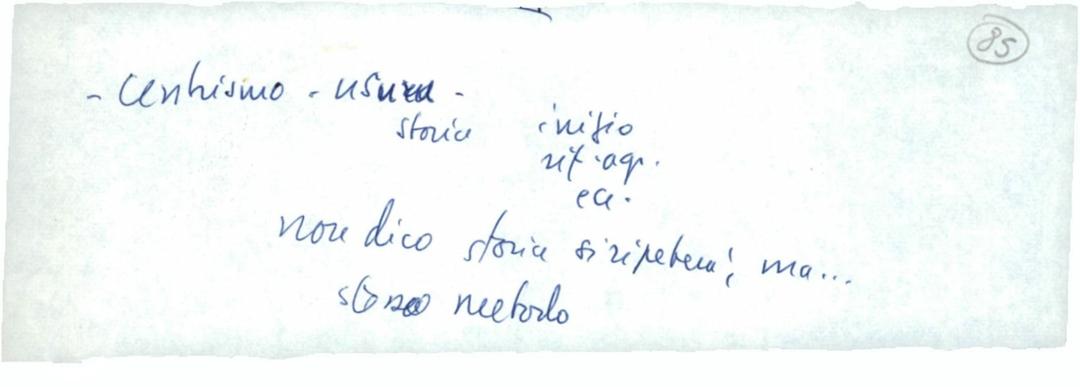 85
- Centrismo - usura -
storia inizio
rif. agr.
ecc.
non dico storia si ripeterà, ma...
stesso metodo